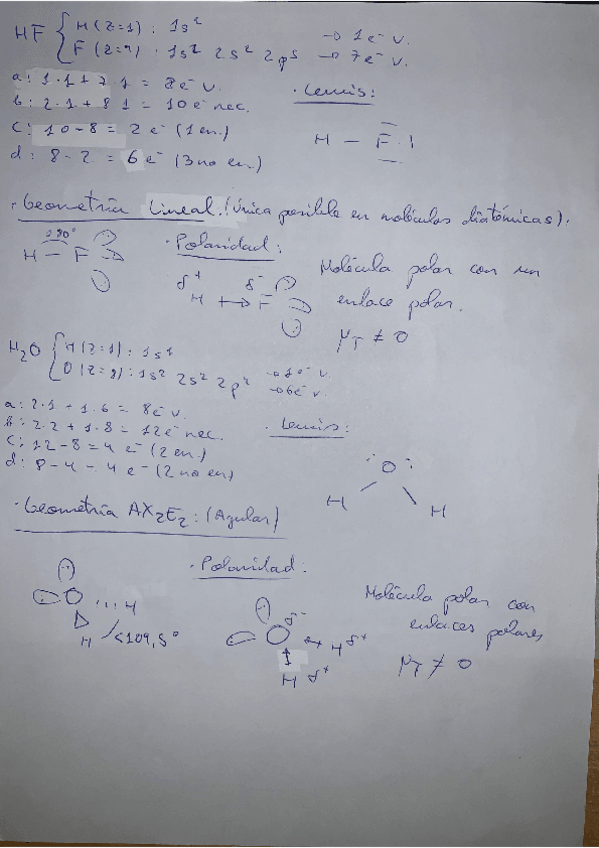 HF { H (Z=1) : 1s² → 1 e⁻ v.
F (Z=9) : 1s² 2s² 2p⁵ → 7 e⁻ v.
a: 1·1 + 7·1 = 8 e⁻ v.
b: 2·1 + 8·1 = 10 e⁻ nec.
c: 10 - 8 = 2 e⁻ (1 en.)
d: 8 - 2 = 6 e⁻ (3 no en.)
· Lewis:
H — F
· Geometría Lineal. (Única posible en moléculas diatómicas).
H — F
· Polaridad:
δ⁺ δ⁻
H ↦ F
Molécula polar con un
enlace polar.
μT ≠ 0
H₂O { H (Z=1) : 1s¹ → 1 e⁻ v.
O (Z=8) : 1s² 2s² 2p² → 6 e⁻ v.
a: 2·1 + 1·6 = 8 e⁻ v.
b: 2·2 + 1·8 = 12 e⁻ nec.
c: 12 - 8 = 4 e⁻ (2 en.)
d: 8 - 4 - 4 e⁻ (2 no en)
· Lewis:
O
H H
· Geometría AX₂E₂ : (Angular)
O ... H
H <109,5°
· Polaridad:
O δ⁻
H δ⁺
H δ⁺
Molécula polar con
enlaces polares
μT ≠ 0